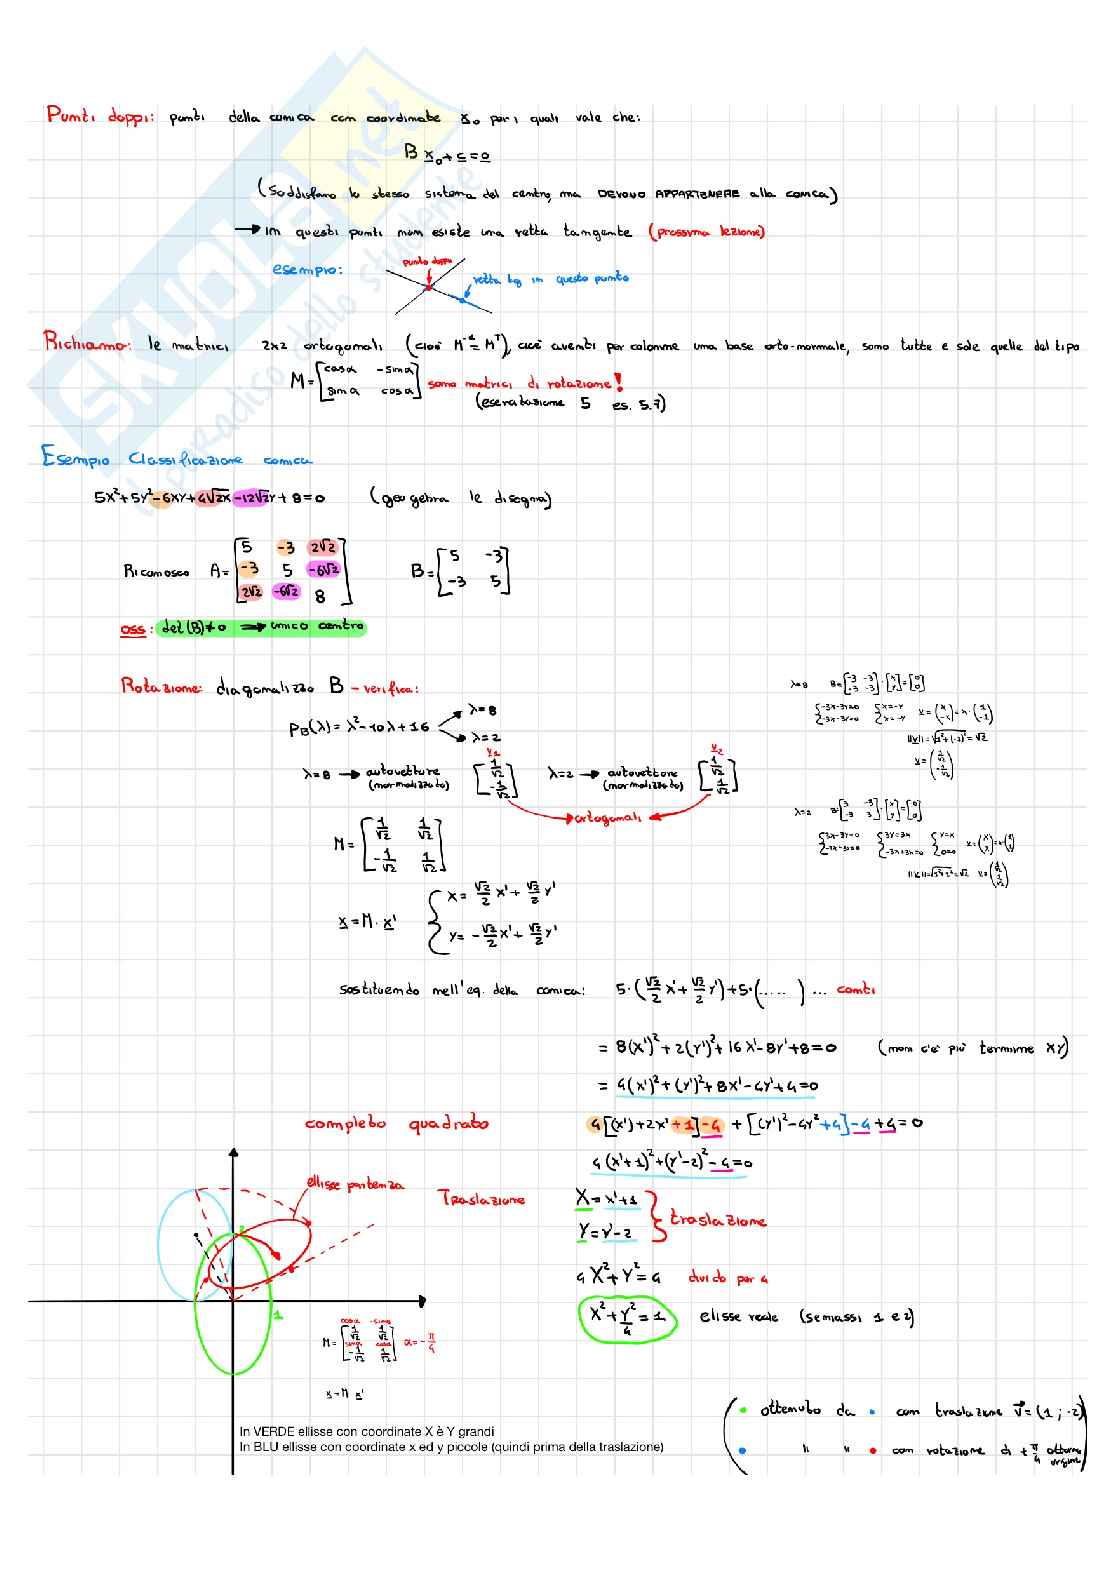 Punti doppi: punti della conica con coordinate x₀ per i quali vale che:
B x₀ + c = 0
(soddisfano lo stesso sistema del centro, ma DEVONO APPARTENERE alla conica)
→ in questi punti non esiste una retta tangente (prossima lezione)
esempio:
punto doppio
retta tg in questo punto
Richiamo: le matrici 2x2 ortogonali (cioè M⁻¹=Mᵀ), cioè aventi per colonne una base orto-normale, sono tutte e sole quelle del tipo
M = [cosα -sinα
sinα cosα] sono matrici di rotazione!
(esercitazione 5 es. 5.7)
Esempio Classificazione conica
5x²+5y²-6xy+4√2x-12√2y+8=0 (geogebra le disegna)
Riconosco A = [5 -3 2√2
-3 5 -6√2
2√2 -6√2 8] B = [5 -3
-3 5]
oss: det(B)≠0 → unico centro
Rotazione: diagonalizzo B - verifica:
P_B(λ) = λ²-10λ+16
λ=8
λ=2
λ=8 → autovettore (normalizzato) v₁ [1/√2
-1/√2]
λ=2 → autovettore (normalizzato) v₂ [1/√2
1/√2]
ortogonali
λ=8 B=[-3 -3
-3 -3]·[x
y]=[0
0]
{-3x-3y=0
-3x-3y=0 {x=-y
x=-y v=(x
-x)=x·(1
-1)
||v||=√1²+(-1)²=√2
v=(1/√2
-1/√2)
λ=2 B=[3 -3
-3 3]·[x
y]=[0
0]
{3x-3y=0
-3x+3y=0 {3y=3x
-3x+3x=0 {y=x
0=0 v=(x
x)=x·(1
1)
||v||=√1²+1²=√2 v=(1/√2
1/√2)
M = [1/√2 1/√2
-1/√2 1/√2]
x = M·x' {x = √2/2 x' + √2/2 y'
y = -√2/2 x' + √2/2 y'
sostituendo nell'eq. della conica: 5·(√2/2 x' + √2/2 y') + 5·(.....) ... conti
= 8(x')² + 2(y')² + 16x' - 8y' + 8 = 0 (non c'è più termine xy)
= 4(x')² + (y')² + 8x' - 4y' + 4 = 0
completo quadrato 4[(x')+2x'+1]-4 + [(y')²-4y²+4]-4+4=0
4(x'+1)²+(y'-2)²-4=0
Traslazione X = x'+1
Y = y'-2
traslazione
4X²+Y²=4 divido per 4
X²+Y²/4=1 elisse reale (semiassi 1 e 2)
ellisse partenza
2
1
M = [1/√2 1/√2
-1/√2 1/√2]
cosα -sinα
sinα cosα
α=-π/4
x=M x'
In VERDE ellisse con coordinate X è Y grandi
In BLU ellisse con coordinate x ed y piccole (quindi prima della traslazione)
(• ottenuto da • con traslazione v=(1;-2)
• " " • con rotazione di +π/4 attorno origine)
SKUOLA.net
il paradiso dello studente